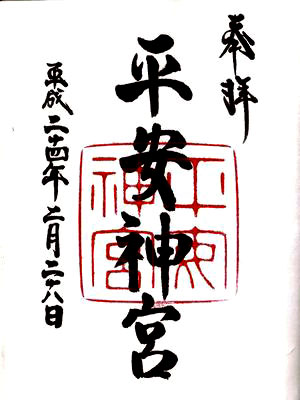 奉拝
平安神宮
平成二十四年 月二十八日
平安神宮